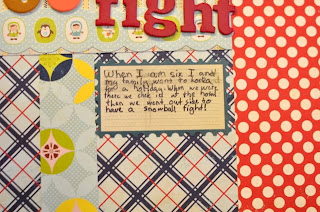 fight
When I am six I and
my family went to korea
for a holiday. When we were
there we chek id at the hotel
then we went out side to
have a snowball fight!